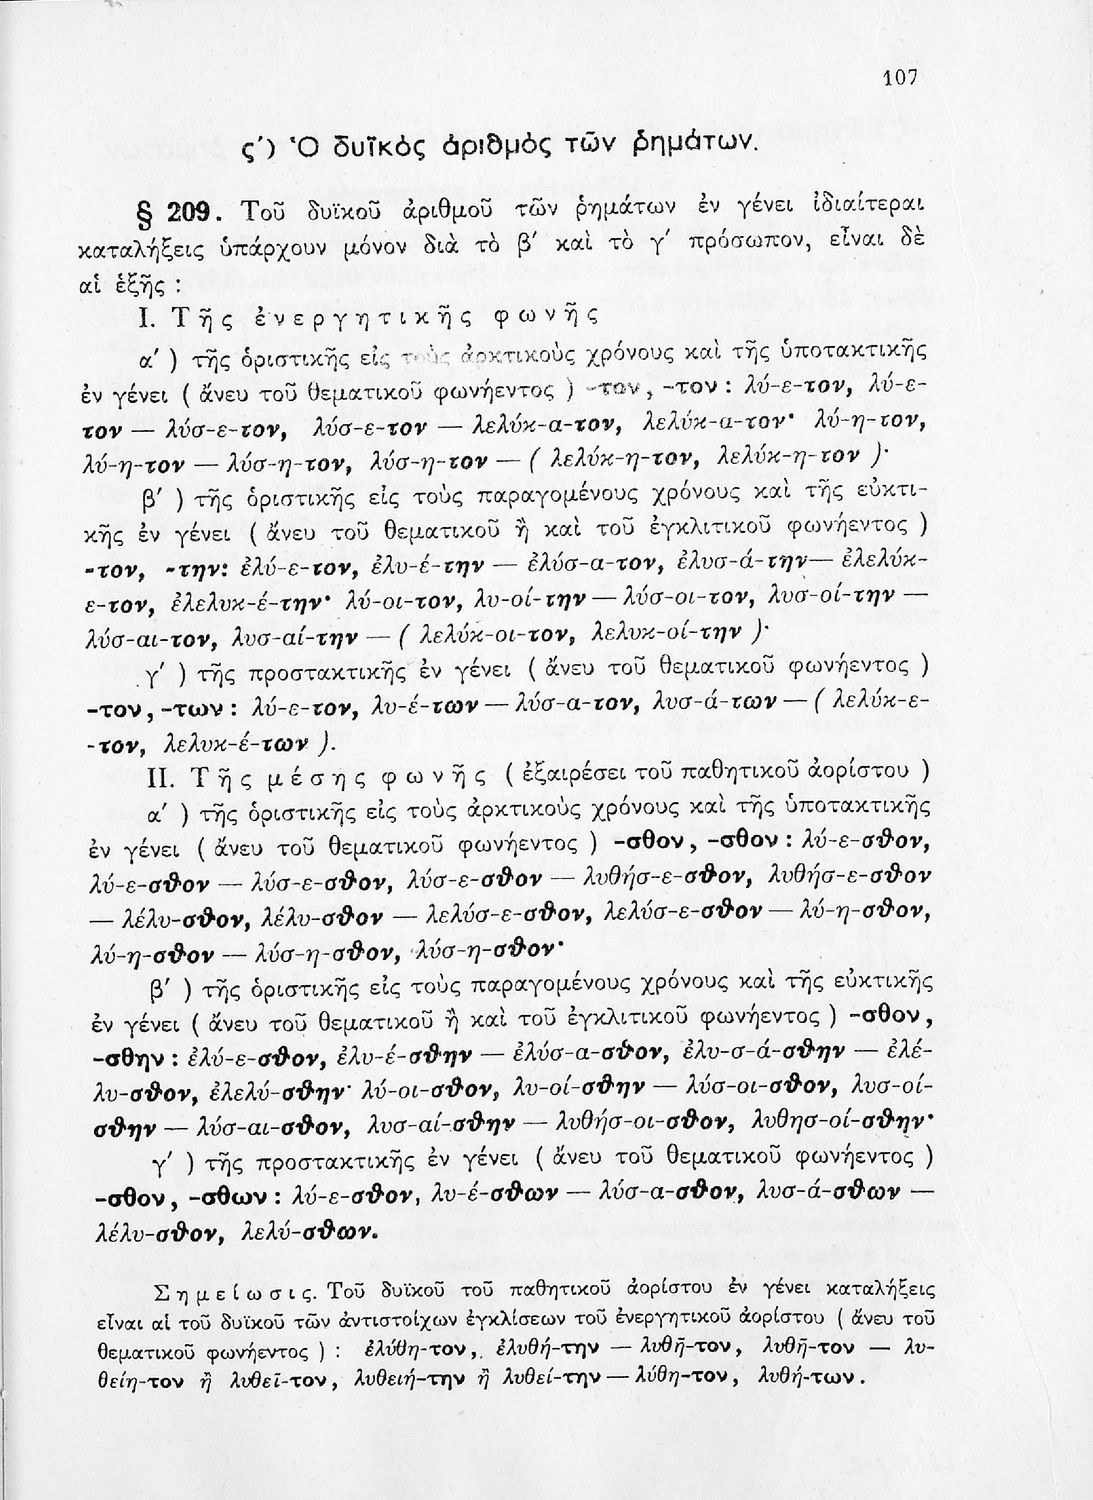 107
ς΄) Ὁ δυϊκὸς ἀριθμὸς τῶν ῥημάτων.
§ 209. Τοῦ δυϊκοῦ ἀριθμοῦ τῶν ῥημάτων ἐν γένει ἰδιαίτεραι
καταλήξεις ὑπάρχουν μόνον διὰ τὸ β΄ καὶ τὸ γ΄ πρόσωπον, εἶναι δὲ
αἱ ἑξῆς :
I. Τῆς ἐνεργητικῆς φωνῆς
α΄ ) τῆς ὁριστικῆς εἰς τοὺς ἀρκτικοὺς χρόνους καὶ τῆς ὑποτακτικῆς
ἐν γένει ( ἄνευ τοῦ θεματικοῦ φωνήεντος ) -τον, -τον : λύ-ε-τον, λύ-ε-
τον — λύσ-ε-τον, λύσ-ε-τον — λελύκ-α-τον, λελύκ-α-τον· λύ-η-τον,
λύ-η-τον — λύσ-η-τον, λύσ-η-τον — ( λελύκ-η-τον, λελύκ-η-τον )·
β΄ ) τῆς ὁριστικῆς εἰς τοὺς παραγομένους χρόνους καὶ τῆς εὐκτι-
κῆς ἐν γένει ( ἄνευ τοῦ θεματικοῦ ἢ καὶ τοῦ ἐγκλιτικοῦ φωνήεντος )
-τον, -την: ἐλύ-ε-τον, ἐλυ-έ-την — ἐλύσ-α-τον, ἐλυσ-ά-την— ἐλελύκ-
ε-τον, ἐλελυκ-έ-την· λύ-οι-τον, λυ-οί-την — λύσ-οι-τον, λυσ-οί-την —
λύσ-αι-τον, λυσ-αί-την — ( λελύκ-οι-τον, λελυκ-οί-την )·
γ΄ ) τῆς προστακτικῆς ἐν γένει ( ἄνευ τοῦ θεματικοῦ φωνήεντος )
-τον, -των : λύ-ε-τον, λυ-έ-των — λύσ-α-τον, λυσ-ά-των — ( λελύκ-ε-
-τον, λελυκ-έ-των ).
II. Τῆς μέσης φωνῆς ( ἐξαιρέσει τοῦ παθητικοῦ ἀορίστου )
α΄ ) τῆς ὁριστικῆς εἰς τοὺς ἀρκτικοὺς χρόνους καὶ τῆς ὑποτακτικῆς
ἐν γένει ( ἄνευ τοῦ θεματικοῦ φωνήεντος ) -σθον, -σθον : λύ-ε-σθον,
λύ-ε-σθον — λύσ-ε-σθον, λύσ-ε-σθον — λυθήσ-ε-σθον, λυθήσ-ε-σθον
— λέλυ-σθον, λέλυ-σθον — λελύσ-ε-σθον, λελύσ-ε-σθον — λύ-η-σθον,
λύ-η-σθον — λύσ-η-σθον, λύσ-η-σθον·
β΄ ) τῆς ὁριστικῆς εἰς τοὺς παραγομένους χρόνους καὶ τῆς εὐκτικῆς
ἐν γένει ( ἄνευ τοῦ θεματικοῦ ἢ καὶ τοῦ ἐγκλιτικοῦ φωνήεντος ) -σθον,
-σθην : ἐλύ-ε-σθον, ἐλυ-έ-σθην — ἐλύσ-α-σθον, ἐλυ-σ-ά-σθην — ἐλέ-
λυ-σθον, ἐλελύ-σθην· λύ-οι-σθον, λυ-οί-σθην — λύσ-οι-σθον, λυσ-οί-
σθην — λύσ-αι-σθον, λυσ-αί-σθην — λυθήσ-οι-σθον, λυθησ-οί-σθην·
γ΄ ) τῆς προστακτικῆς ἐν γένει ( ἄνευ τοῦ θεματικοῦ φωνήεντος )
-σθον, -σθων : λύ-ε-σθον, λυ-έ-σθων — λύσ-α-σθον, λυσ-ά-σθων —
λέλυ-σθον, λελύ-σθων.
Σημείωσις. Τοῦ δυϊκοῦ τοῦ παθητικοῦ ἀορίστου ἐν γένει καταλήξεις
εἶναι αἱ τοῦ δυϊκοῦ τῶν ἀντιστοίχων ἐγκλίσεων τοῦ ἐνεργητικοῦ ἀορίστου ( ἄνευ τοῦ
θεματικοῦ φωνήεντος ) : ἐλύθη-τον, ἐλυθή-την — λυθῆ-τον, λυθῆ-τον — λυ-
θείη-τον ἢ λυθεῖ-τον, λυθειή-την ἢ λυθεί-την — λύθη-τον, λυθή-των.